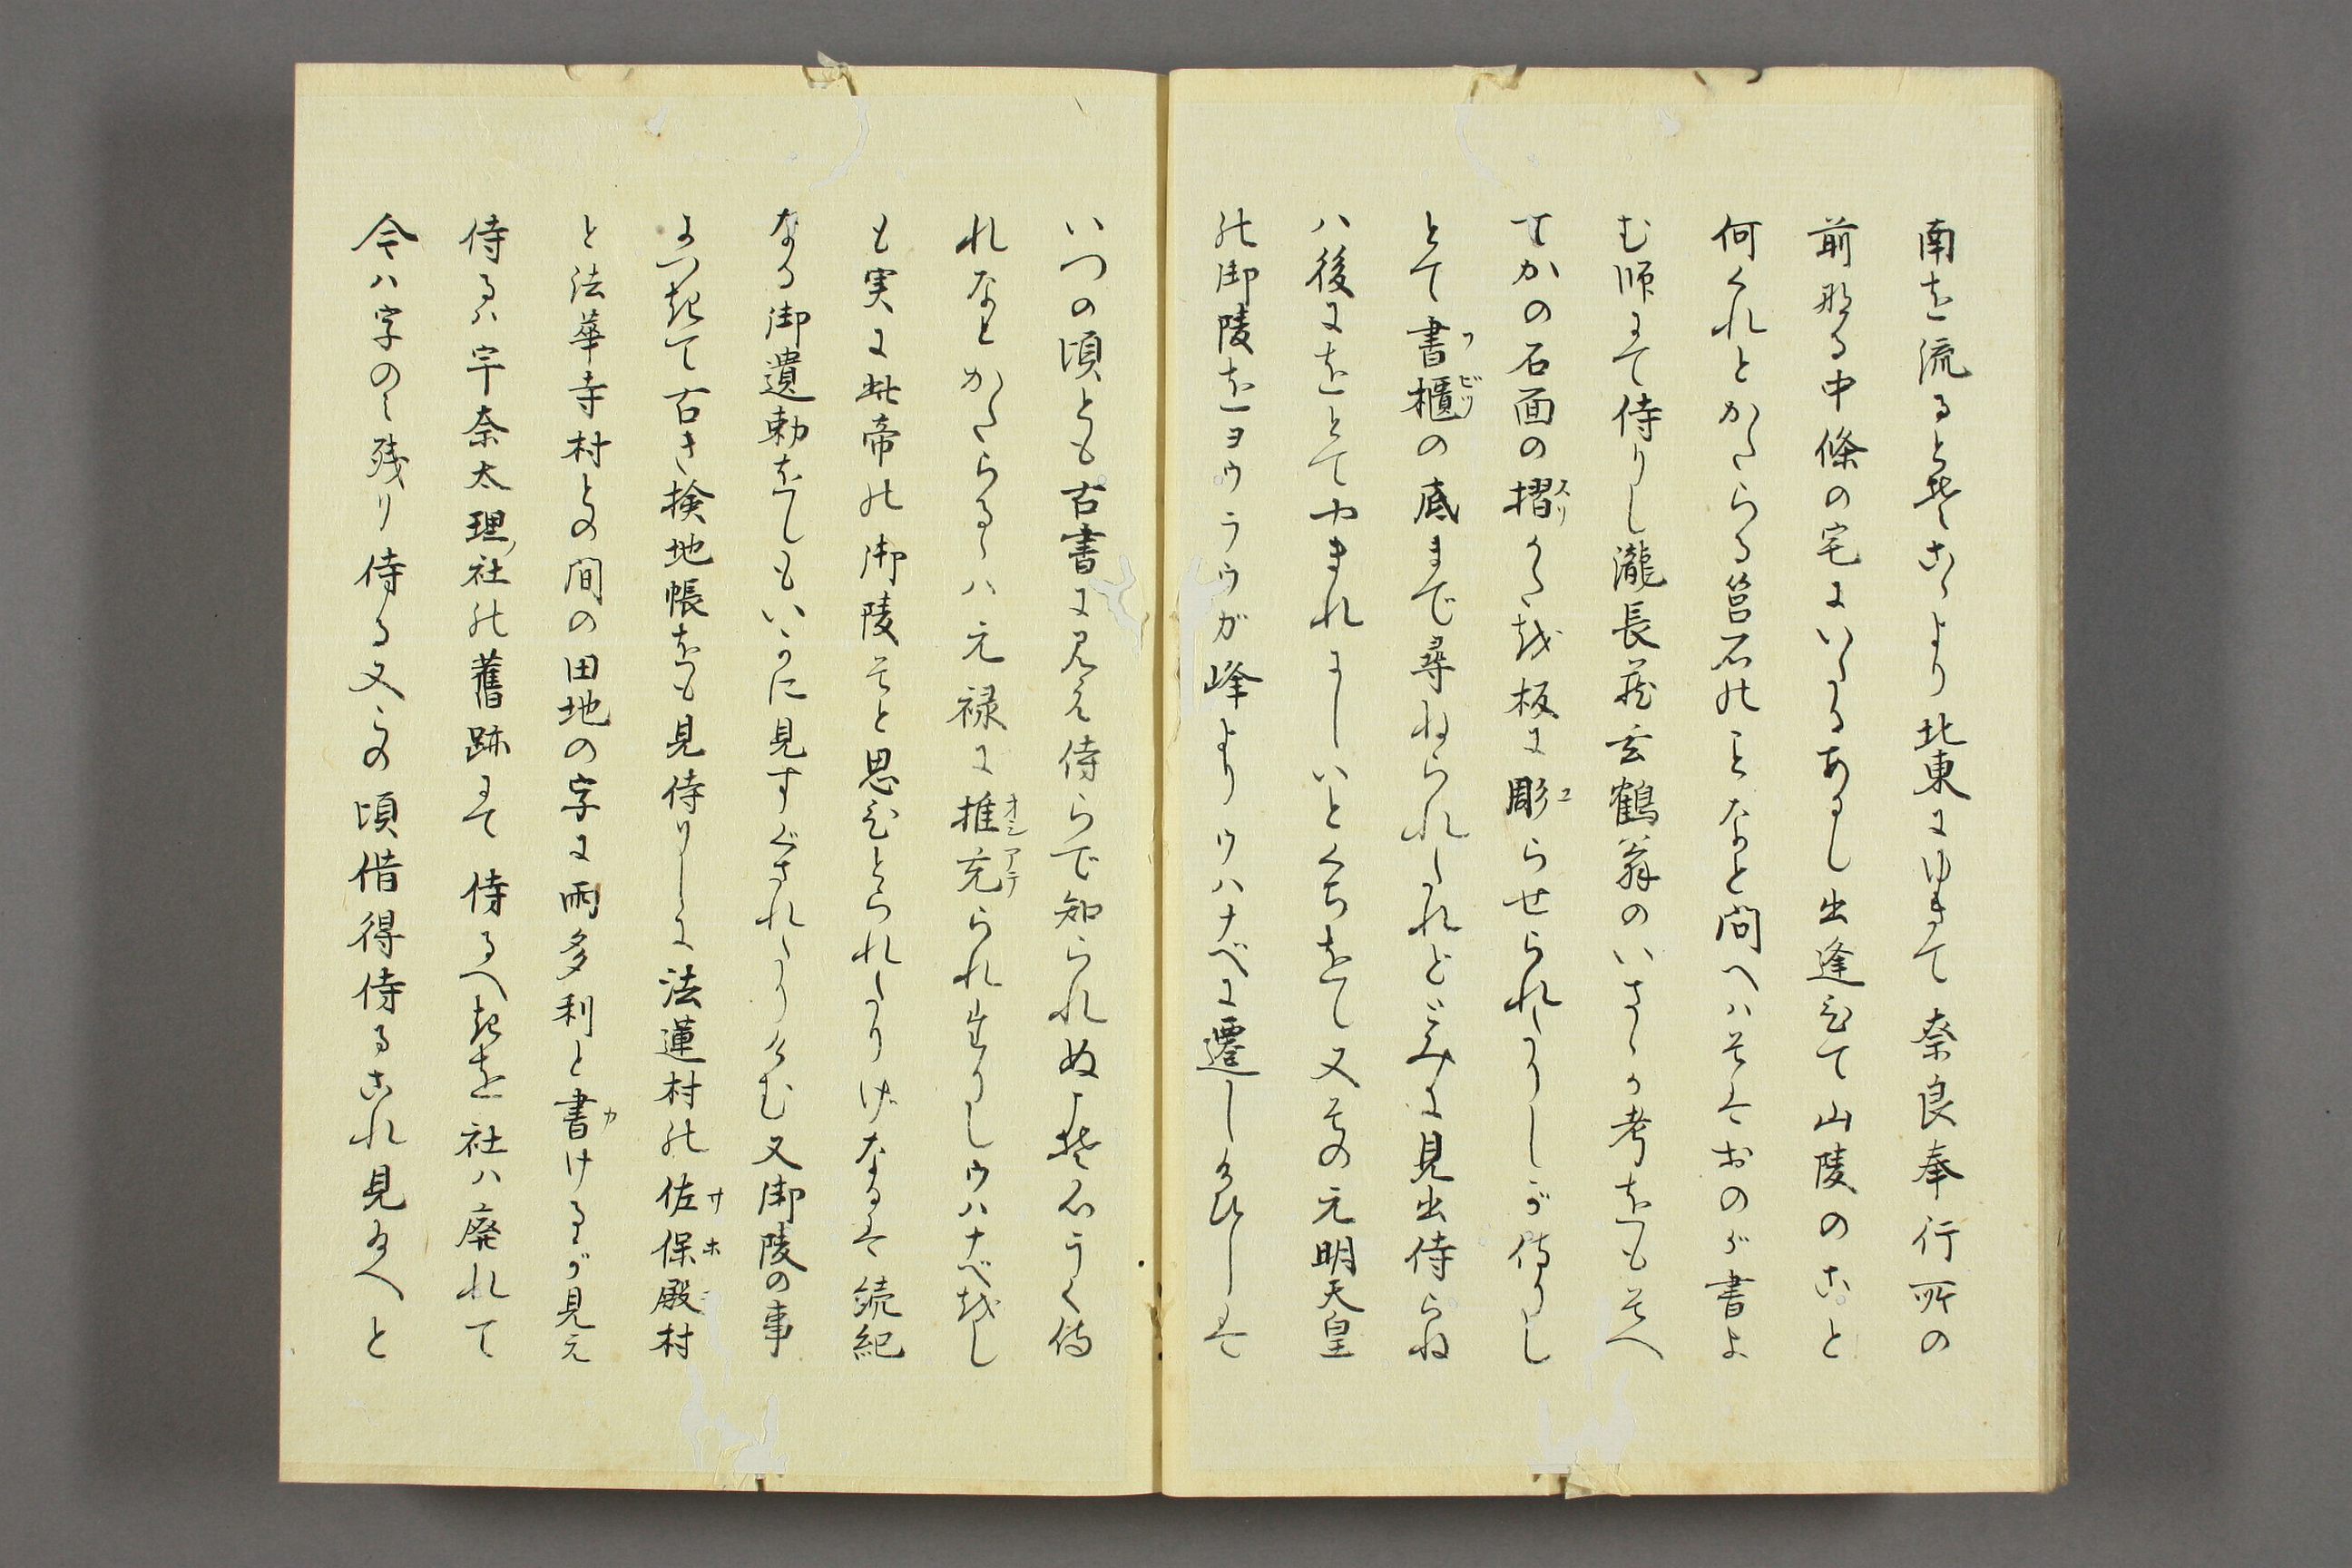 南を流るとぞこゝより北東にゆきて奈良奉行所の
前なる中條の宅にいたるあるし出逢ひて山陵のこと
何くれとかたらる筥石のことなと問へはそはおのが書よ
む師にて侍りし瀧長庵玄鶴翁のいさゝか考をもそへ
てかの石面の摺かたを板に彫らせられたりしが侍りし
とて書櫃の底まで尋ねられたれどとみに見出侍らね
ハ後にをとてやまれにしいとくちをし又その元明天皇
の御陵をヨウラウが峰よりウハナベに遷し給ひしは
いつの頃とも古書に見え侍らで知られぬよし石うく侍
れなとかたらるゝハ元禄に推充られ出りしウハナベをし
も実に此帝の御陵そと思ひとられたりげなるは続紀
なる御遺勅をしもいかに見すぐされたりけむ又御陵の事
につきて古き検地帳をも見侍りしに法蓮村の佐保殿村
と法華寺村との間の田地の字に雨多利と書けるが見え
侍るハ宇奈太理ノ社の舊跡にて侍るへきを社ハ廃れて
今ハ字のミ残り侍る又この頃借得侍るこれ見給へと